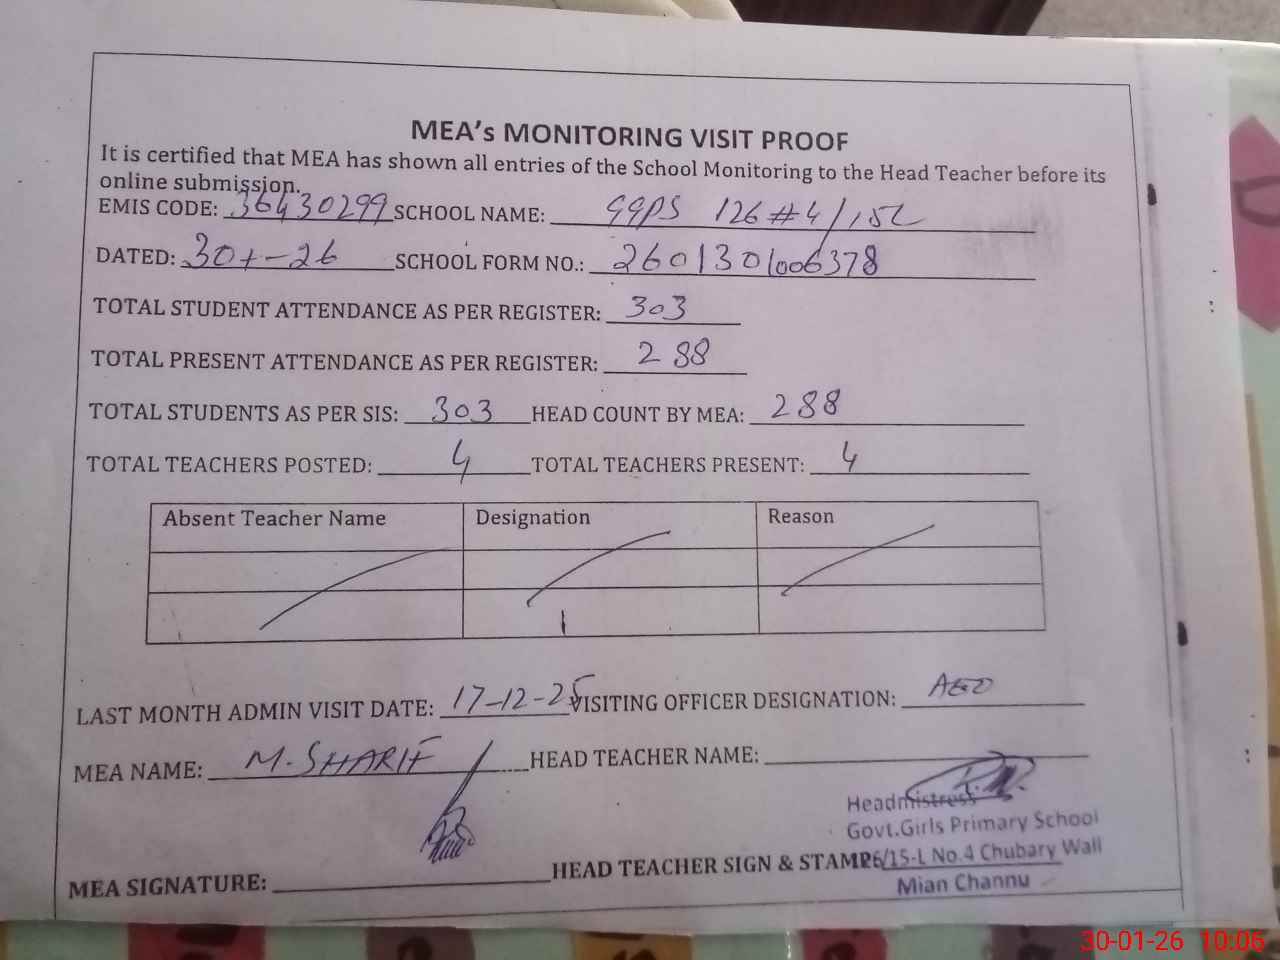 MEA's MONITORING VISIT PROOF
It is certified that MEA has shown all entries of the School Monitoring to the Head Teacher before its
online submission.
EMIS CODE: 36430299 SCHOOL NAME: GGPS 126 #4/15L
DATED: 30-1-26 SCHOOL FORM NO.: 2601301006378
TOTAL STUDENT ATTENDANCE AS PER REGISTER: 303
TOTAL PRESENT ATTENDANCE AS PER REGISTER: 288
TOTAL STUDENTS AS PER SIS: 303 HEAD COUNT BY MEA: 288
TOTAL TEACHERS POSTED: 4 TOTAL TEACHERS PRESENT: 4
Absent Teacher Name Designation Reason
LAST MONTH ADMIN VISIT DATE: 17-12-25 VISITING OFFICER DESIGNATION: AEO
MEA NAME: M. SHARIF HEAD TEACHER NAME:
Headmistress
Govt.Girls Primary School
MEA SIGNATURE: HEAD TEACHER SIGN & STAMP 26/15-L No.4 Chubary Wali
Mian Channu
30-01-26 10:06